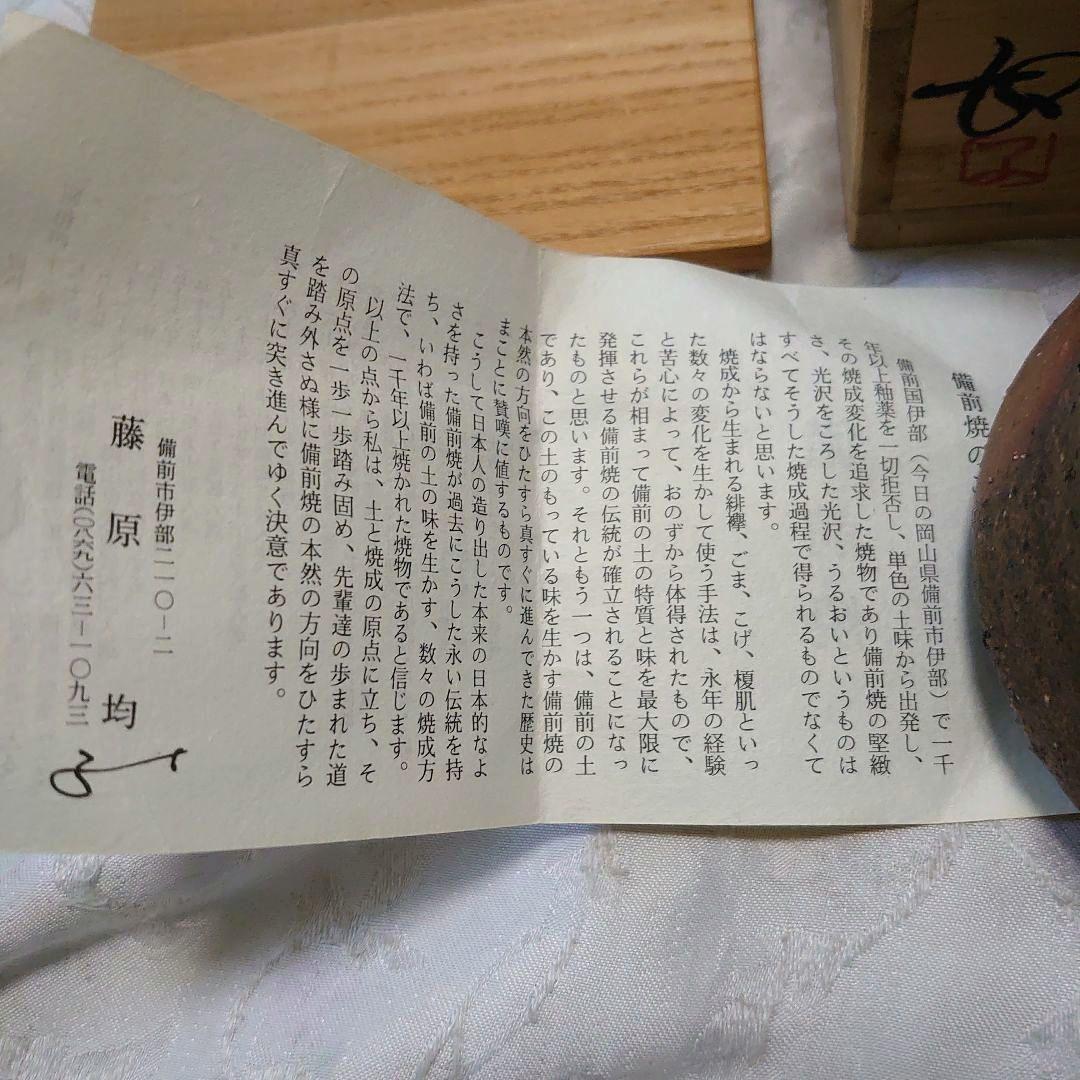 備前焼の
備前国伊部（今日の岡山県備前市伊部）で一千
年以上釉薬を一切拒否し、単色の土味から出発し、
その焼成変化を追求した焼物であり備前焼の堅緻
さ、光沢をころした光沢、うるおいというものは
すべてそうした焼成過程で得られるものでなくて
はならないと思います。
焼成から生まれる緋襷、ごま、こげ、榎肌といっ
た数々の変化を生かして使う手法は、永年の経験
と苦心によって、おのずから体得されたもので、
これらが相まって備前の土の特質と味を最大限に
発揮させる備前焼の伝統が確立されることになっ
たものと思います。それともう一つは、備前の土
であり、この土のもっている味を生かす備前焼の
本然の方向をひたすら真すぐに進んできた歴史は
まことに賛嘆に値するものです。
こうして日本人の造り出した本来の日本的なよ
さを持った備前焼が過去にこうした永い伝統を持
ち、いわば備前の土の味を生かす、数々の焼成方
法で、一千年以上焼かれた焼物であると信じます。
以上の点から私は、土と焼成の原点に立ち、そ
の原点を一歩一歩踏み固め、先輩達の歩まれた道
を踏み外さぬ様に備前焼の本然の方向をひたすら
真すぐに突き進んでゆく決意であります。
備前市伊部二一〇－二
藤原均
電話(〇八六九)六三－一〇九三